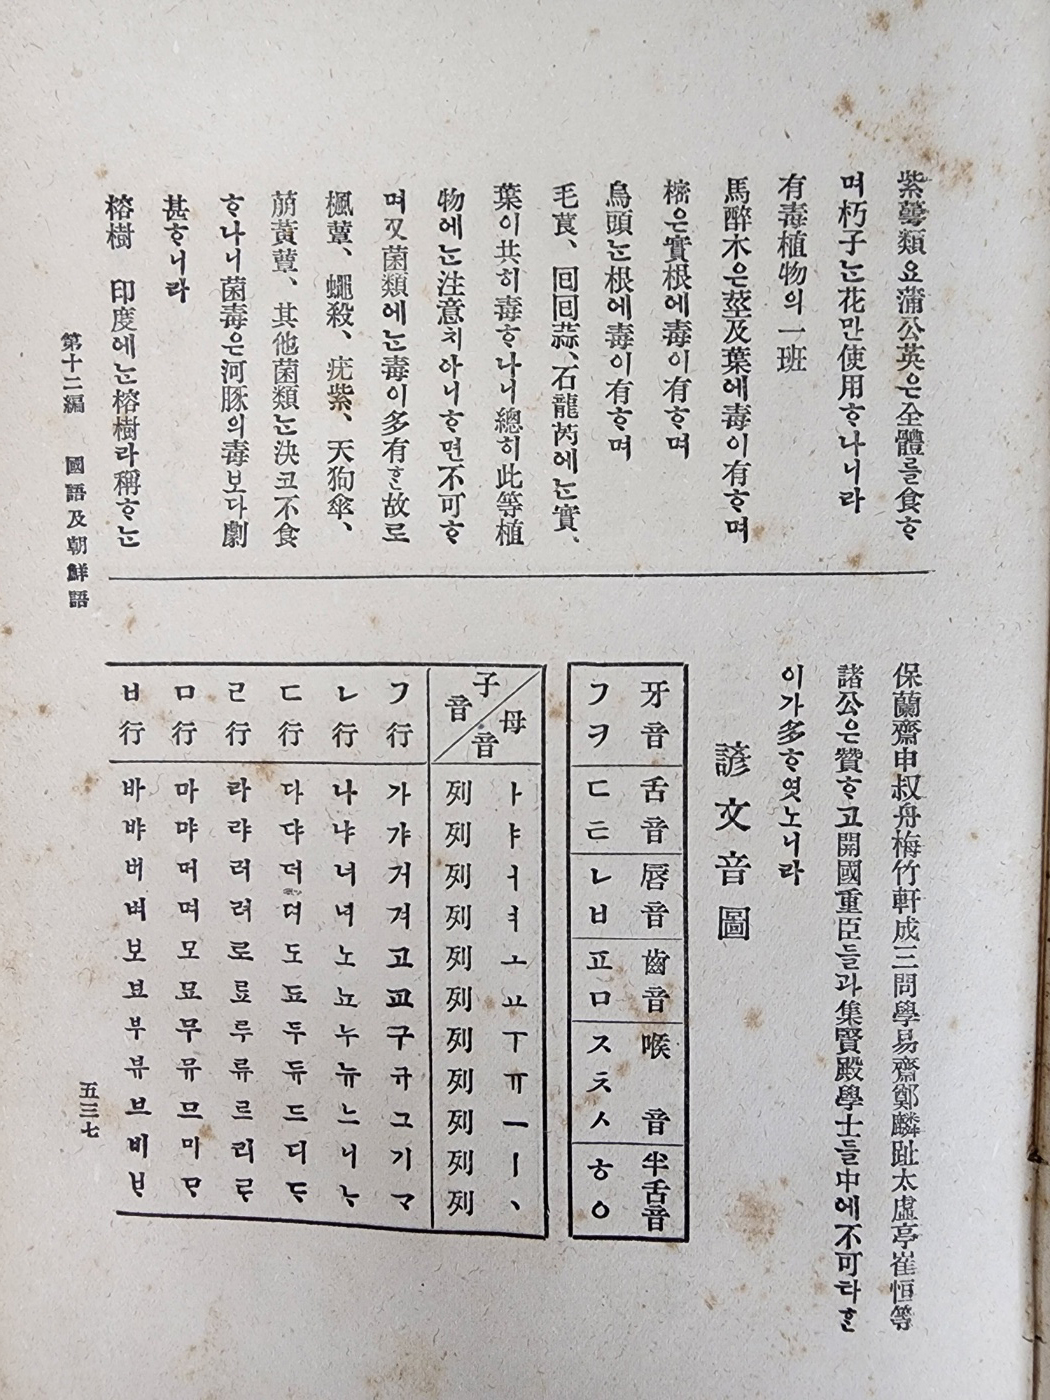 紫蕓類요蒲公英은全體를食ᄒᆞ
며朽子ᄂᆞᆫ花만使用ᄒᆞ나니라
有毒植物의一班
馬醉木은莖及葉에毒이有ᄒᆞ며
樒은實根에毒이有ᄒᆞ며
烏頭ᄂᆞᆫ根에毒이有ᄒᆞ며
毛莨、回回蒜、石龍芮에ᄂᆞᆫ實、
葉이共히毒ᄒᆞ나니總히此等植
物에ᄂᆞᆫ注意치아니ᄒᆞ면不可ᄒᆞ
며又菌類에ᄂᆞᆫ毒이多有ᄒᆞᆫ故로
楓蕈、蠅殺、疣紫、天狗傘、
萠黃蕈、其他菌類ᄂᆞᆫ決코不食
ᄒᆞ나니菌毒은河豚의毒보다劇
甚ᄒᆞ니라
榕樹 印度에ᄂᆞᆫ榕樹라稱ᄒᆞᄂᆞᆫ
保蘭齋申叔舟梅竹軒成三問學易齋鄭麟趾太虛亭崔恒等
諸公은贊ᄒᆞ고開國重臣들과集賢殿學士들中에不可타ᄒᆞᆫ
이가多ᄒᆞ엿노니라
諺文音圖
牙音 舌音 唇音 齒音 喉音 半舌音
ㄱㅋ ㄷㅌ ㄴㅂ ㅍㅁ ㅈㅊㅅ ㅎㅇ
母音 ㅏ ㅑ ㅓ ㅕ ㅗ ㅛ ㅜ ㅠ ㅡ ㅣ ㆍ
子音 列 列 列 列 列 列 列 列 列 列 列
ㄱ行 가 갸 거 겨 고 교 구 규 그 기 ᄀᆞ
ㄴ行 나 냐 너 녀 노 뇨 누 뉴 느 니 ᄂᆞ
ㄷ行 다 댜 더 뎌 도 됴 두 듀 드 디 ᄃᆞ
ㄹ行 라 랴 러 려 로 료 루 류 르 리 ᄅᆞ
ㅁ行 마 먀 머 며 모 묘 무 뮤 므 미 ᄆᆞ
ㅂ行 바 뱌 버 벼 보 뵤 부 뷰 브 비 ᄇᆞ
第十二編 國語及朝鮮語
五三七